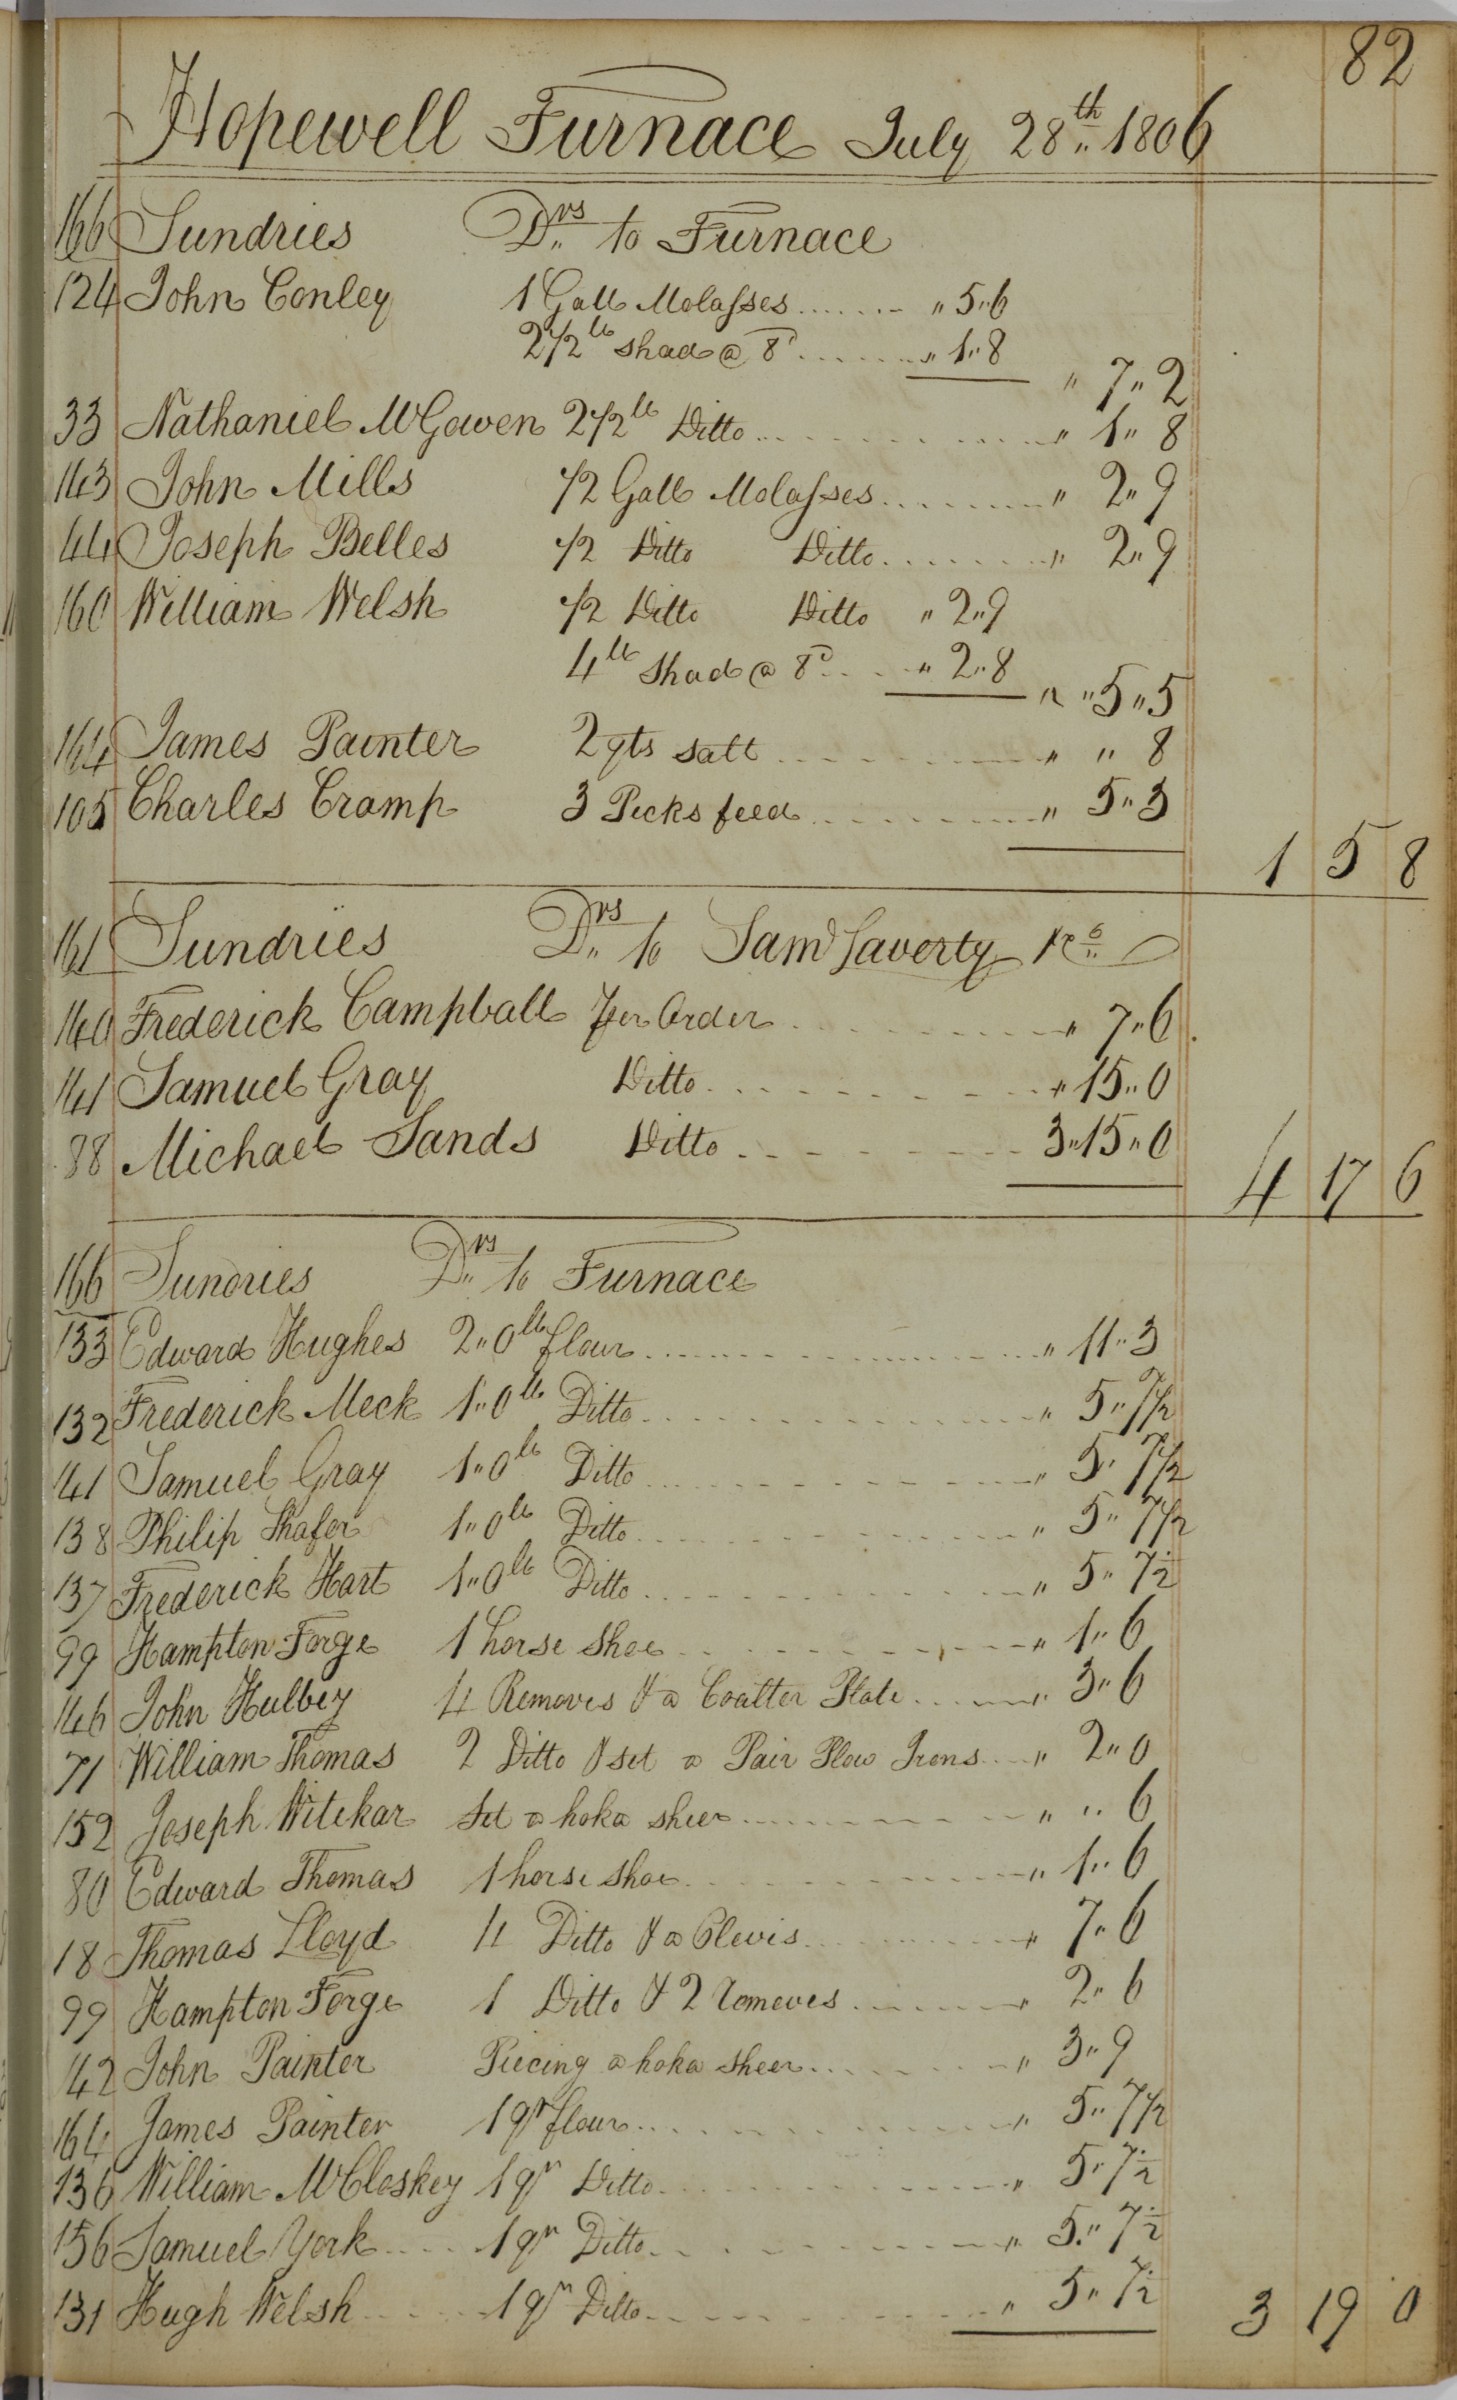 82
Hopewell Furnace July 28th 1806
166 Sundries Drs to Furnace
124 John Conley 1 Gall Molasses " 5"6
2 1/2 lb Shad @ 8d " 1"8
" 7"2
33 Nathaniel McGowen 2 1/2 lb Ditto " 1"8
143 John Mills 1/2 Gall Molasses " 2"9
44 Joseph Belles 1/2 Ditto Ditto " 2"9
160 William Welsh 1/2 Ditto Ditto " 2"9
4 lb Shad @ 8d " 2"8
" "5"5
164 James Painter 2 qts Salt " " 8
105 Charles Cramp 3 Pecks feed " 5"3
1 5 8
161 Sundries Drs to Saml Laverty
140 Frederick Campball Per Order " 7"6
141 Samuel Gray Ditto " 15"0
88 Michael Sands Ditto 3"15"0
4 17 6
166 Sundries Drs to Furnace
133 Edward Hughes 2"0 lb flour " 11"3
132 Frederick Meck 1"0 lb Ditto " 5"7 1/2
141 Samuel Gray 1"0 lb Ditto " 5"7 1/2
138 Philip Shafer 1"0 lb Ditto " 5"7 1/2
137 Frederick Hart 1"0 lb Ditto " 5"7 1/2
99 Hampton Forge 1 horse Shoe " 1"6
146 John Hulbey 4 Removes & a Coalter Plate " 3"6
71 William Thomas 2 Ditto & set a Pair Plow Irons " 2"0
152 Joseph Witekar Set a hoka sheer " " 6
80 Edward Thomas 1 horse Shoe " 1"6
18 Thomas Lloyd 4 Ditto & a Clevis " 7"6
99 Hampton Forge 1 Ditto & 2 removes " 2"6
42 John Painter Piecing a hoka Sheer " 3"9
164 James Painter 1 qr flour " 5"7 1/2
136 William McCloskey 1 qr Ditto " 5"7 1/2
156 Samuel York 1 qr Ditto " 5"7 1/2
131 Hugh Welsh 1 qr Ditto " 5"7 1/2
3 19 0